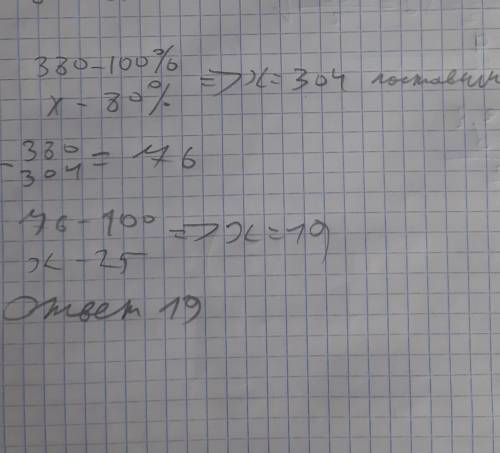 380 - 100% => x = 304
x - 80%
- 380
304 = 76
76 - 100 => x = 19
x - 25
Ответ 19